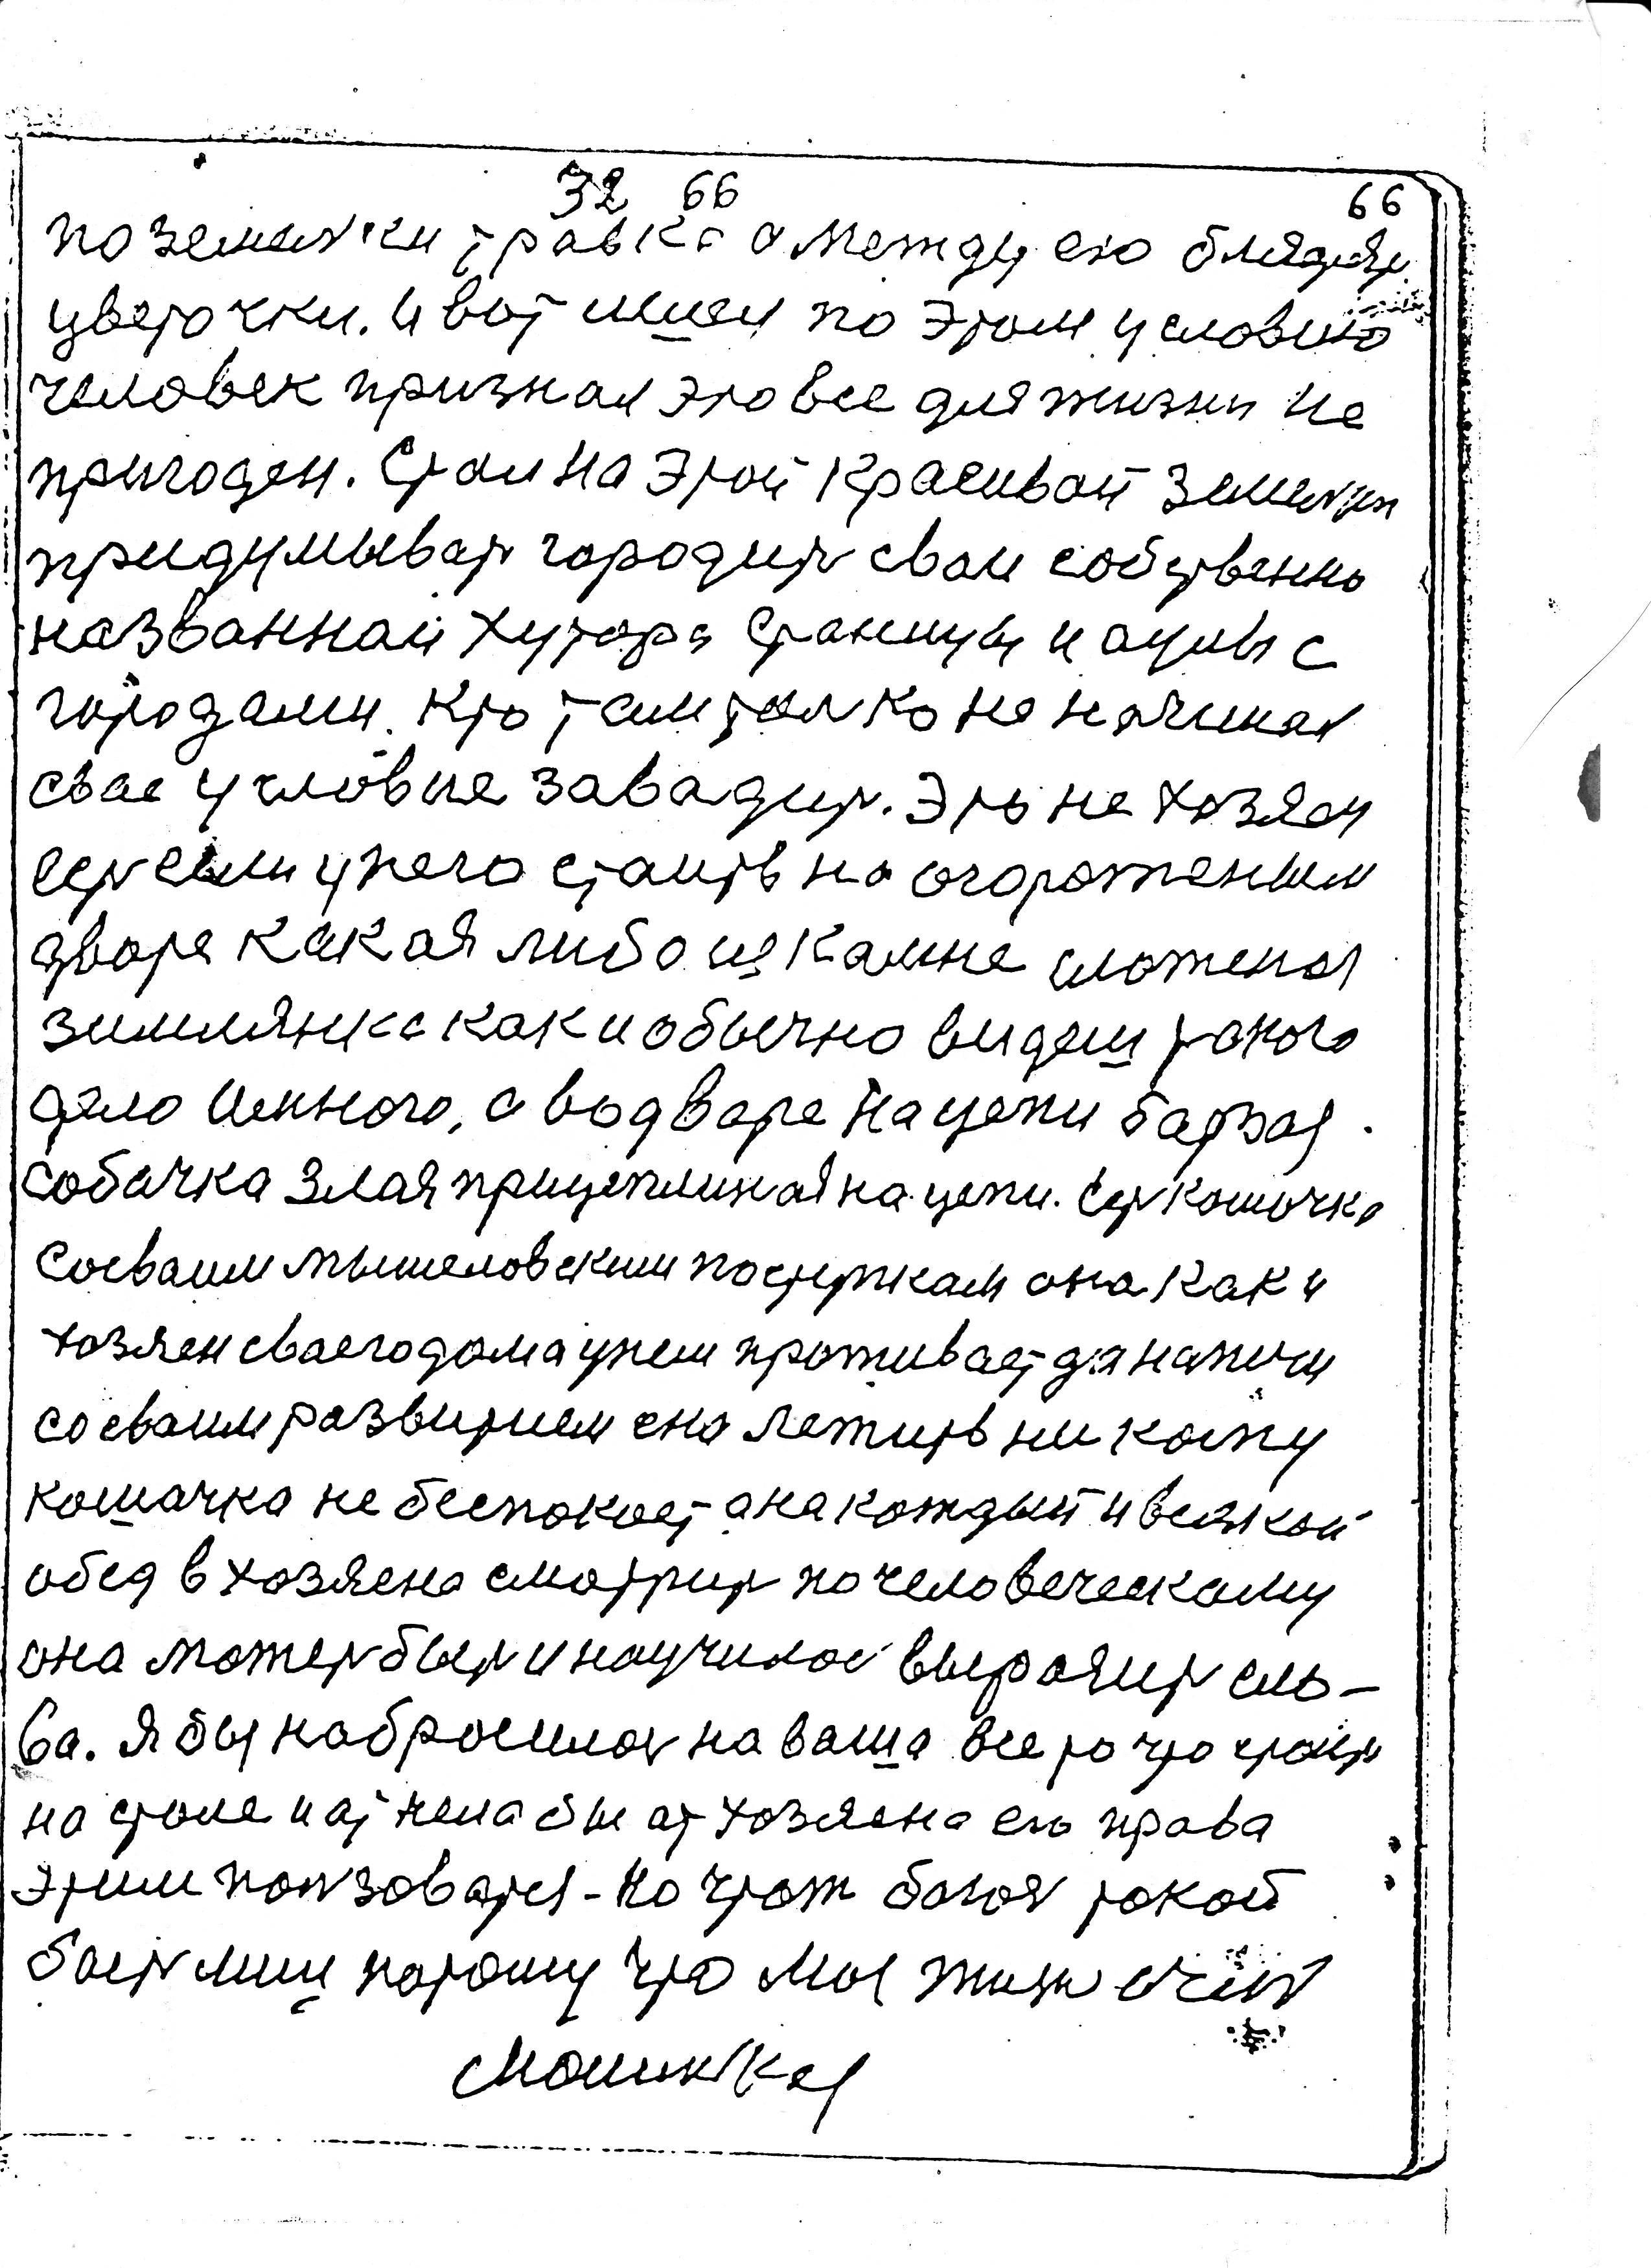 32 66 66
по земельки травка а между ею блядят
цветочки. И вот шшол по этом условию
человек признал это все для жизни не
пригоден. Стал на этой красивой земельки
придумыват городит свои собственно
названнаи хутора станицы и аулы с
городами. Кто там толко не начинал
свае условие завадит. Это не хозяен
если у него стаить на огороженым
дворе какая либо из камне сложеная
зимлянка как и обычно видеш такого
дело иннова, а во дваре на цепи барзая
собачка злая прицеплиная на цепи. Ест кошачка
со сваим мышеловским поступкам она как и
хозяен сваего дома унем проживает да на печи
со сваим развитием она лежить ни кому
кошачка не беспокоет она каждый и всякой
обед в хозяена смотрит по человеческому
она может быт и научилас выразит сло-
ва. Я бы набросилас на ваша все то что стоит
на столе и отнела бы от хозяена его права
этим ползоватся - но чтож богоя такой
баятлиц потому что мы живем очен
маленкая